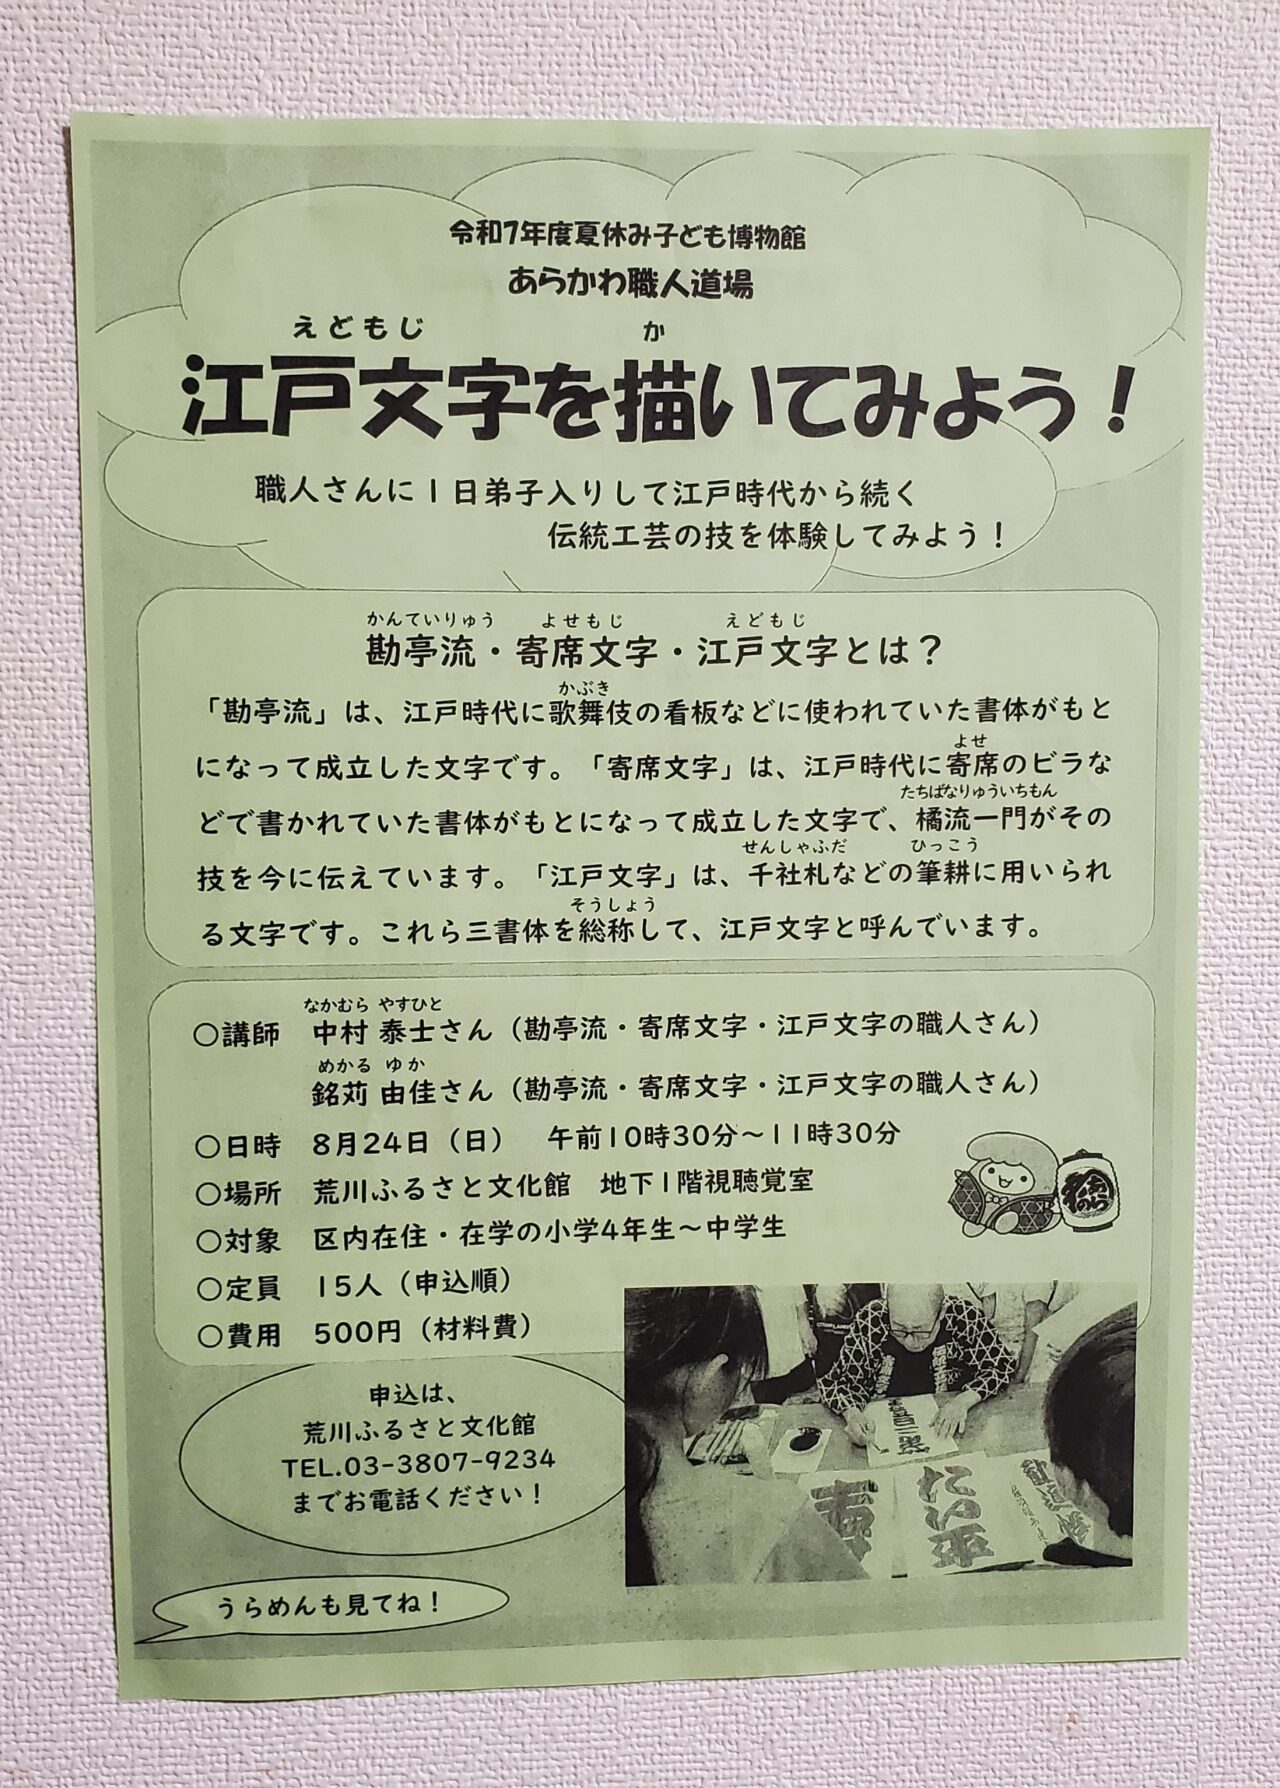 令和7年度夏休み子ども博物館
あらかわ職人道場
えどもじ か
江戸文字を描いてみよう！
職人さんに1日弟子入りして江戸時代から続く
伝統工芸の技を体験してみよう！
かんていりゅう よせもじ えどもじ
勘亭流・寄席文字・江戸文字とは？
かぶき
「勘亭流」は、江戸時代に歌舞伎の看板などに使われていた書体がもと
よせ
になって成立した文字です。「寄席文字」は、江戸時代に寄席のビラな
たちばなりゅういちもん
どで書かれていた書体がもとになって成立した文字で、橘流一門がその
せんしゃふだ ひっこう
技を今に伝えています。「江戸文字」は、千社札などの筆耕に用いられ
そうしょう
る文字です。これら三書体を総称して、江戸文字と呼んでいます。
なかむら やすひと
○講師 中村 泰士さん（勘亭流・寄席文字・江戸文字の職人さん）
めかる ゆか
銘苅 由佳さん（勘亭流・寄席文字・江戸文字の職人さん）
○日時 8月24日（日） 午前10時30分～11時30分
○場所 荒川ふるさと文化館 地下1階視聴覚室
○対象 区内在住・在学の小学4年生～中学生
○定員 15人（申込順）
○費用 500円（材料費）
申込は、
荒川ふるさと文化館
TEL.03-3807-9234
までお電話ください！
うらめんも見てね！